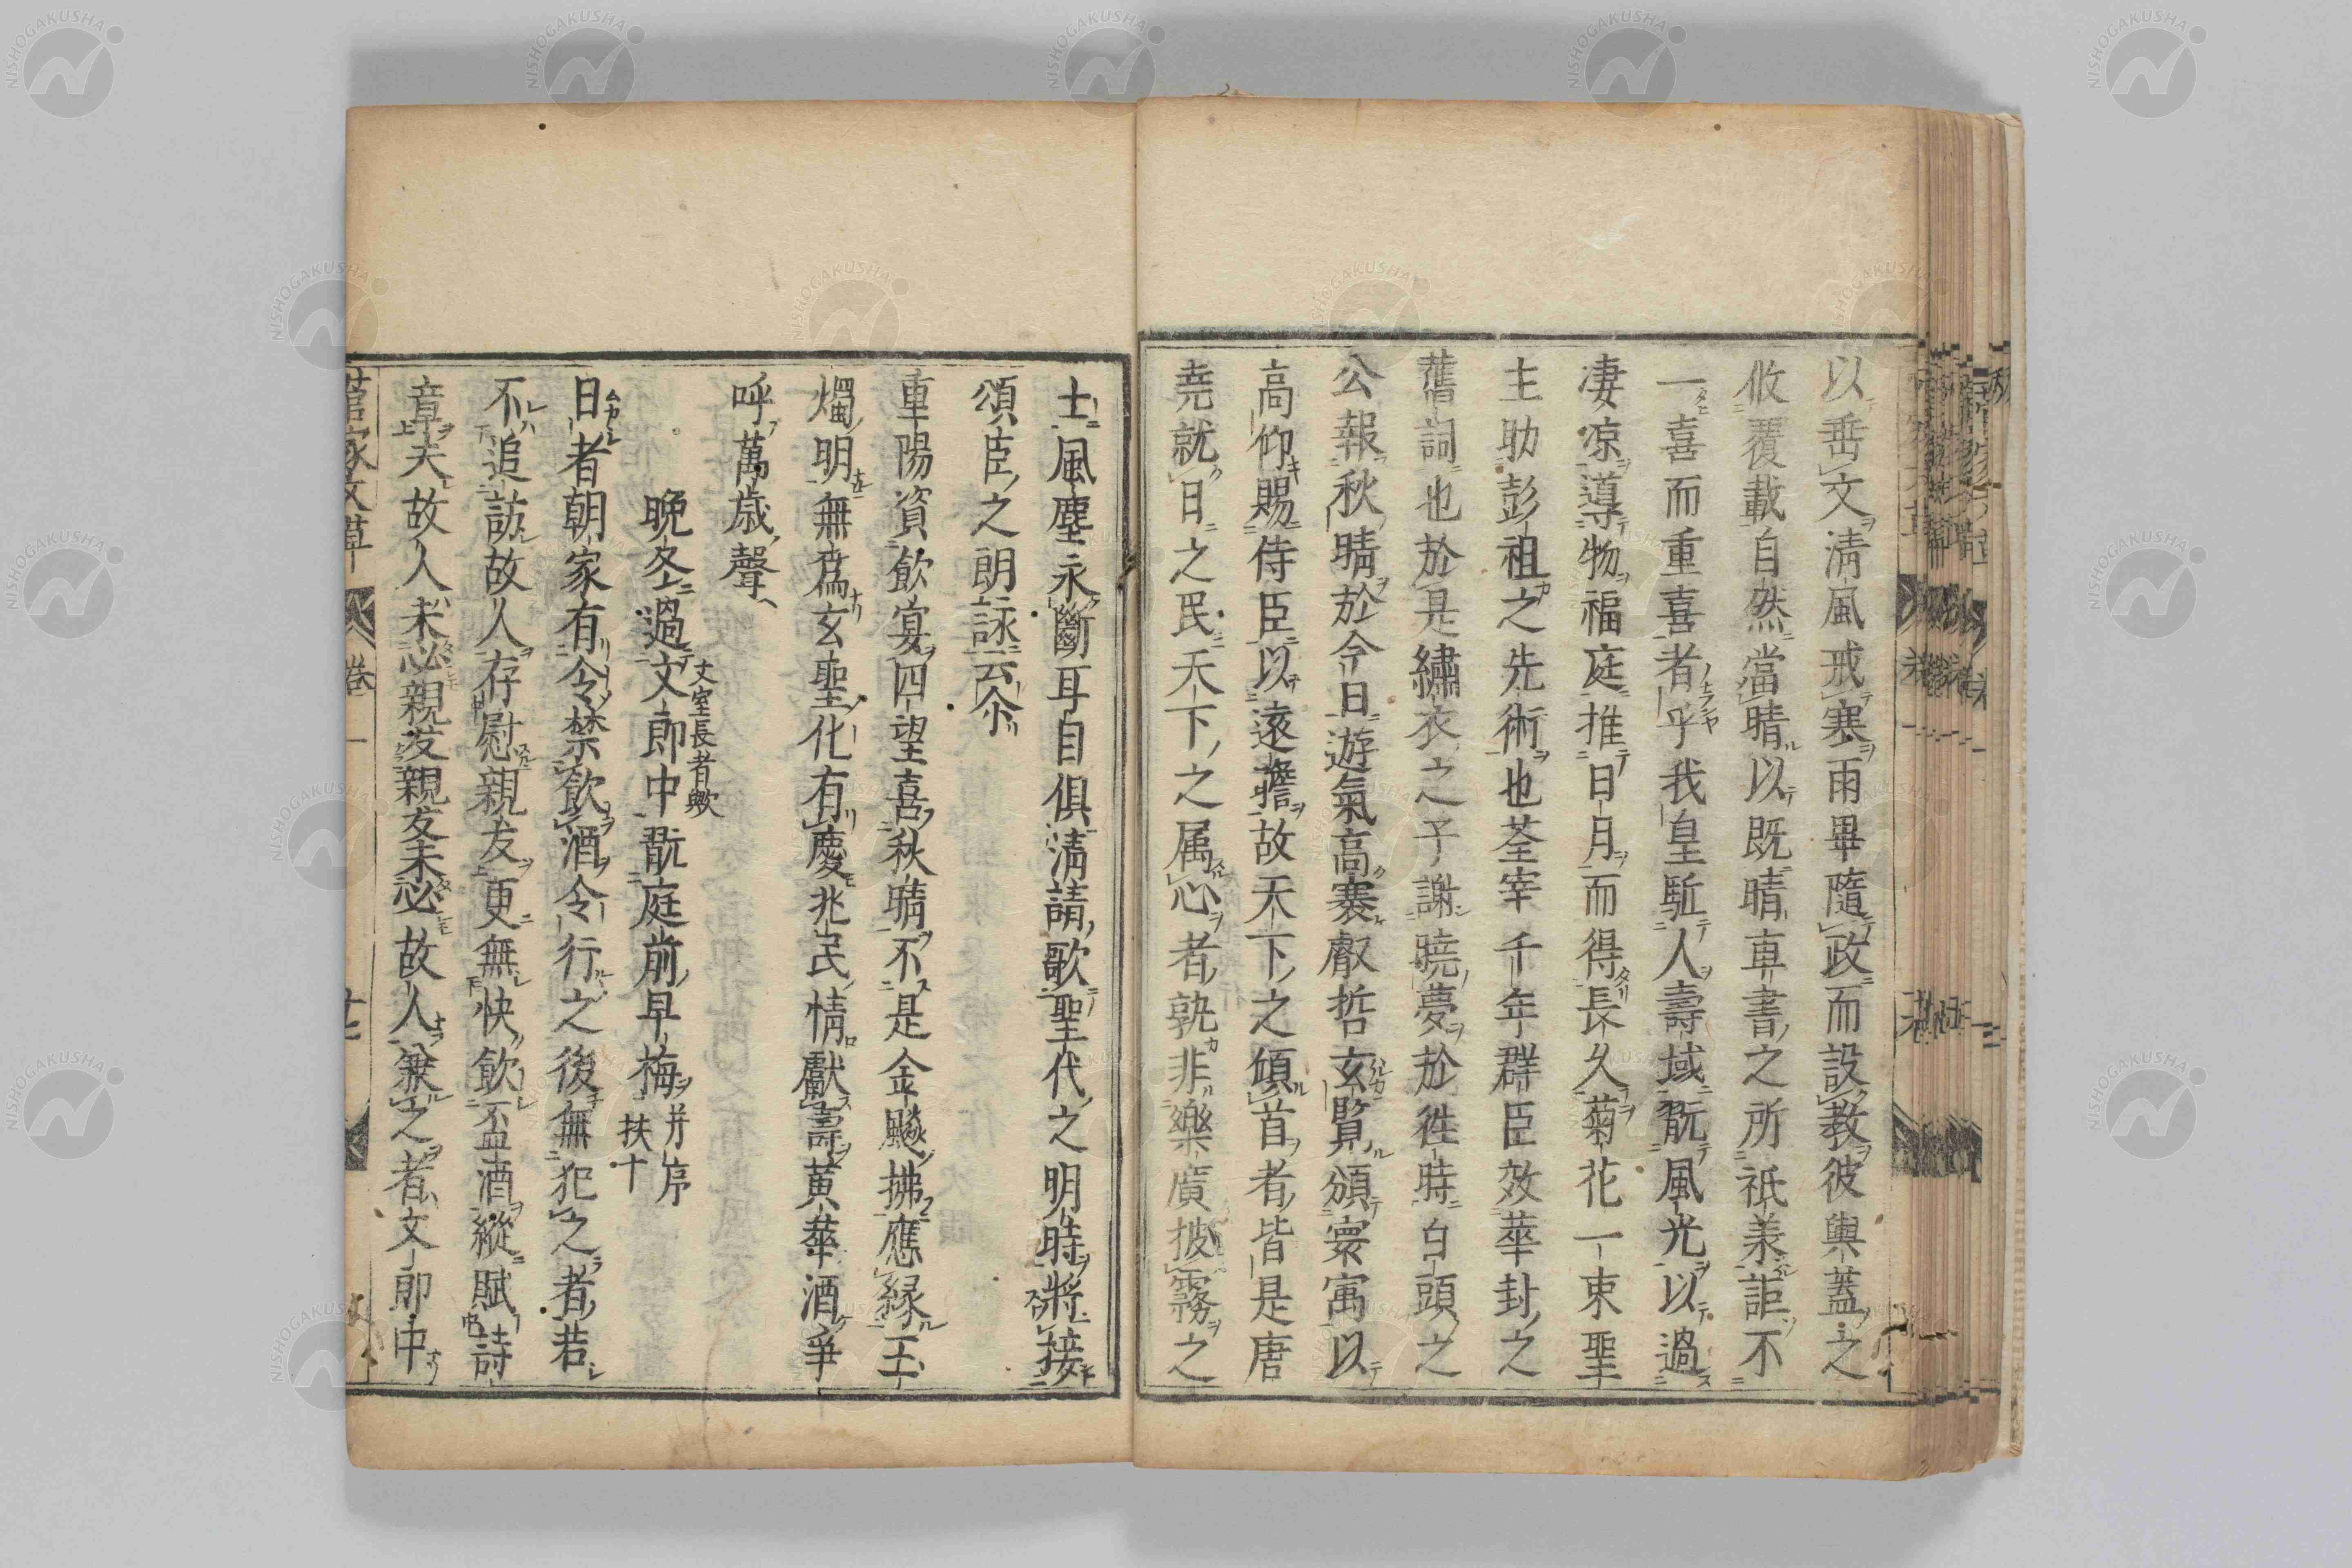 以垂文淸風戒寒雨畢隨政而設敎彼輿蓋之
攸覆載自然當晴以既晴車書之所祇羕詎不
一喜而重喜者乎我皇駈人壽域翫風光以過
凄凉導物福庭推日月而得長久菊花一束聖
主助彭祖之先術也荃宰千年群臣效華封之
舊詞也於是繡衣之子謝曉夢於徃時白頭之
公報秋晴於今日遊氣高褰叡哲玄覧頒寰寓以
高仰賜侍臣以遠瞻故天下之傾首者皆是唐
堯就日之民天下之属心者孰非樂廣披霧之
士風塵永斷耳目俱淸請歌聖代之明時將接
頌臣之朗詠云尒
重陽資飮宴四望喜秋晴不是金飈拂應緑玉
燭明無爲玄聖化有慶兆民情獻壽黄華酒爭
呼萬歳聲
晩冬過文郎中翫庭前早梅并序 扶十
文室長者歟
日者朝家有令禁飮酒令行之後無犯之者若
不追訪故人存慰親友更無快飮盃酒縱賦詩
章夫故人未必親友親友未必故人兼之者文郎中
菅家文草 卷一
NISHOGAKUSHA